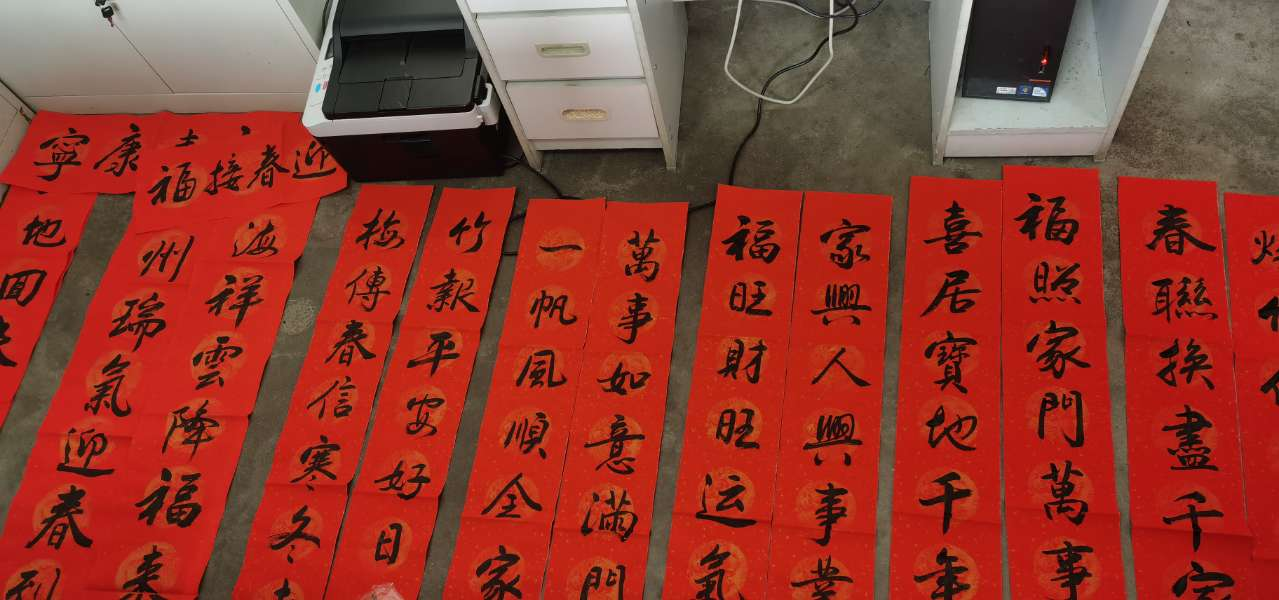 迎春接福
康寧
地回
州瑞氣迎春到
海祥雲降福來
梅傳春信寒冬去
竹報平安好日
一帆風順全家
萬事如意滿門
福旺財旺运氣
家興人興事業
喜居寶地千年
福照家門萬事
春聯換盡千家